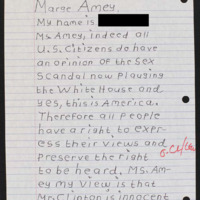 Marge Amey,
My name is
Ms Amey, indeed all
U.S. Citizens do have
an opinion of the Sex
Scandal now Plauing
the White House and
yes, this is America.
Therefore all People
have a right to expr-
ess their Views and
Preserve the right
to be heard. Ms. Am-
ey my View is that
Mr. Clinton is innocent